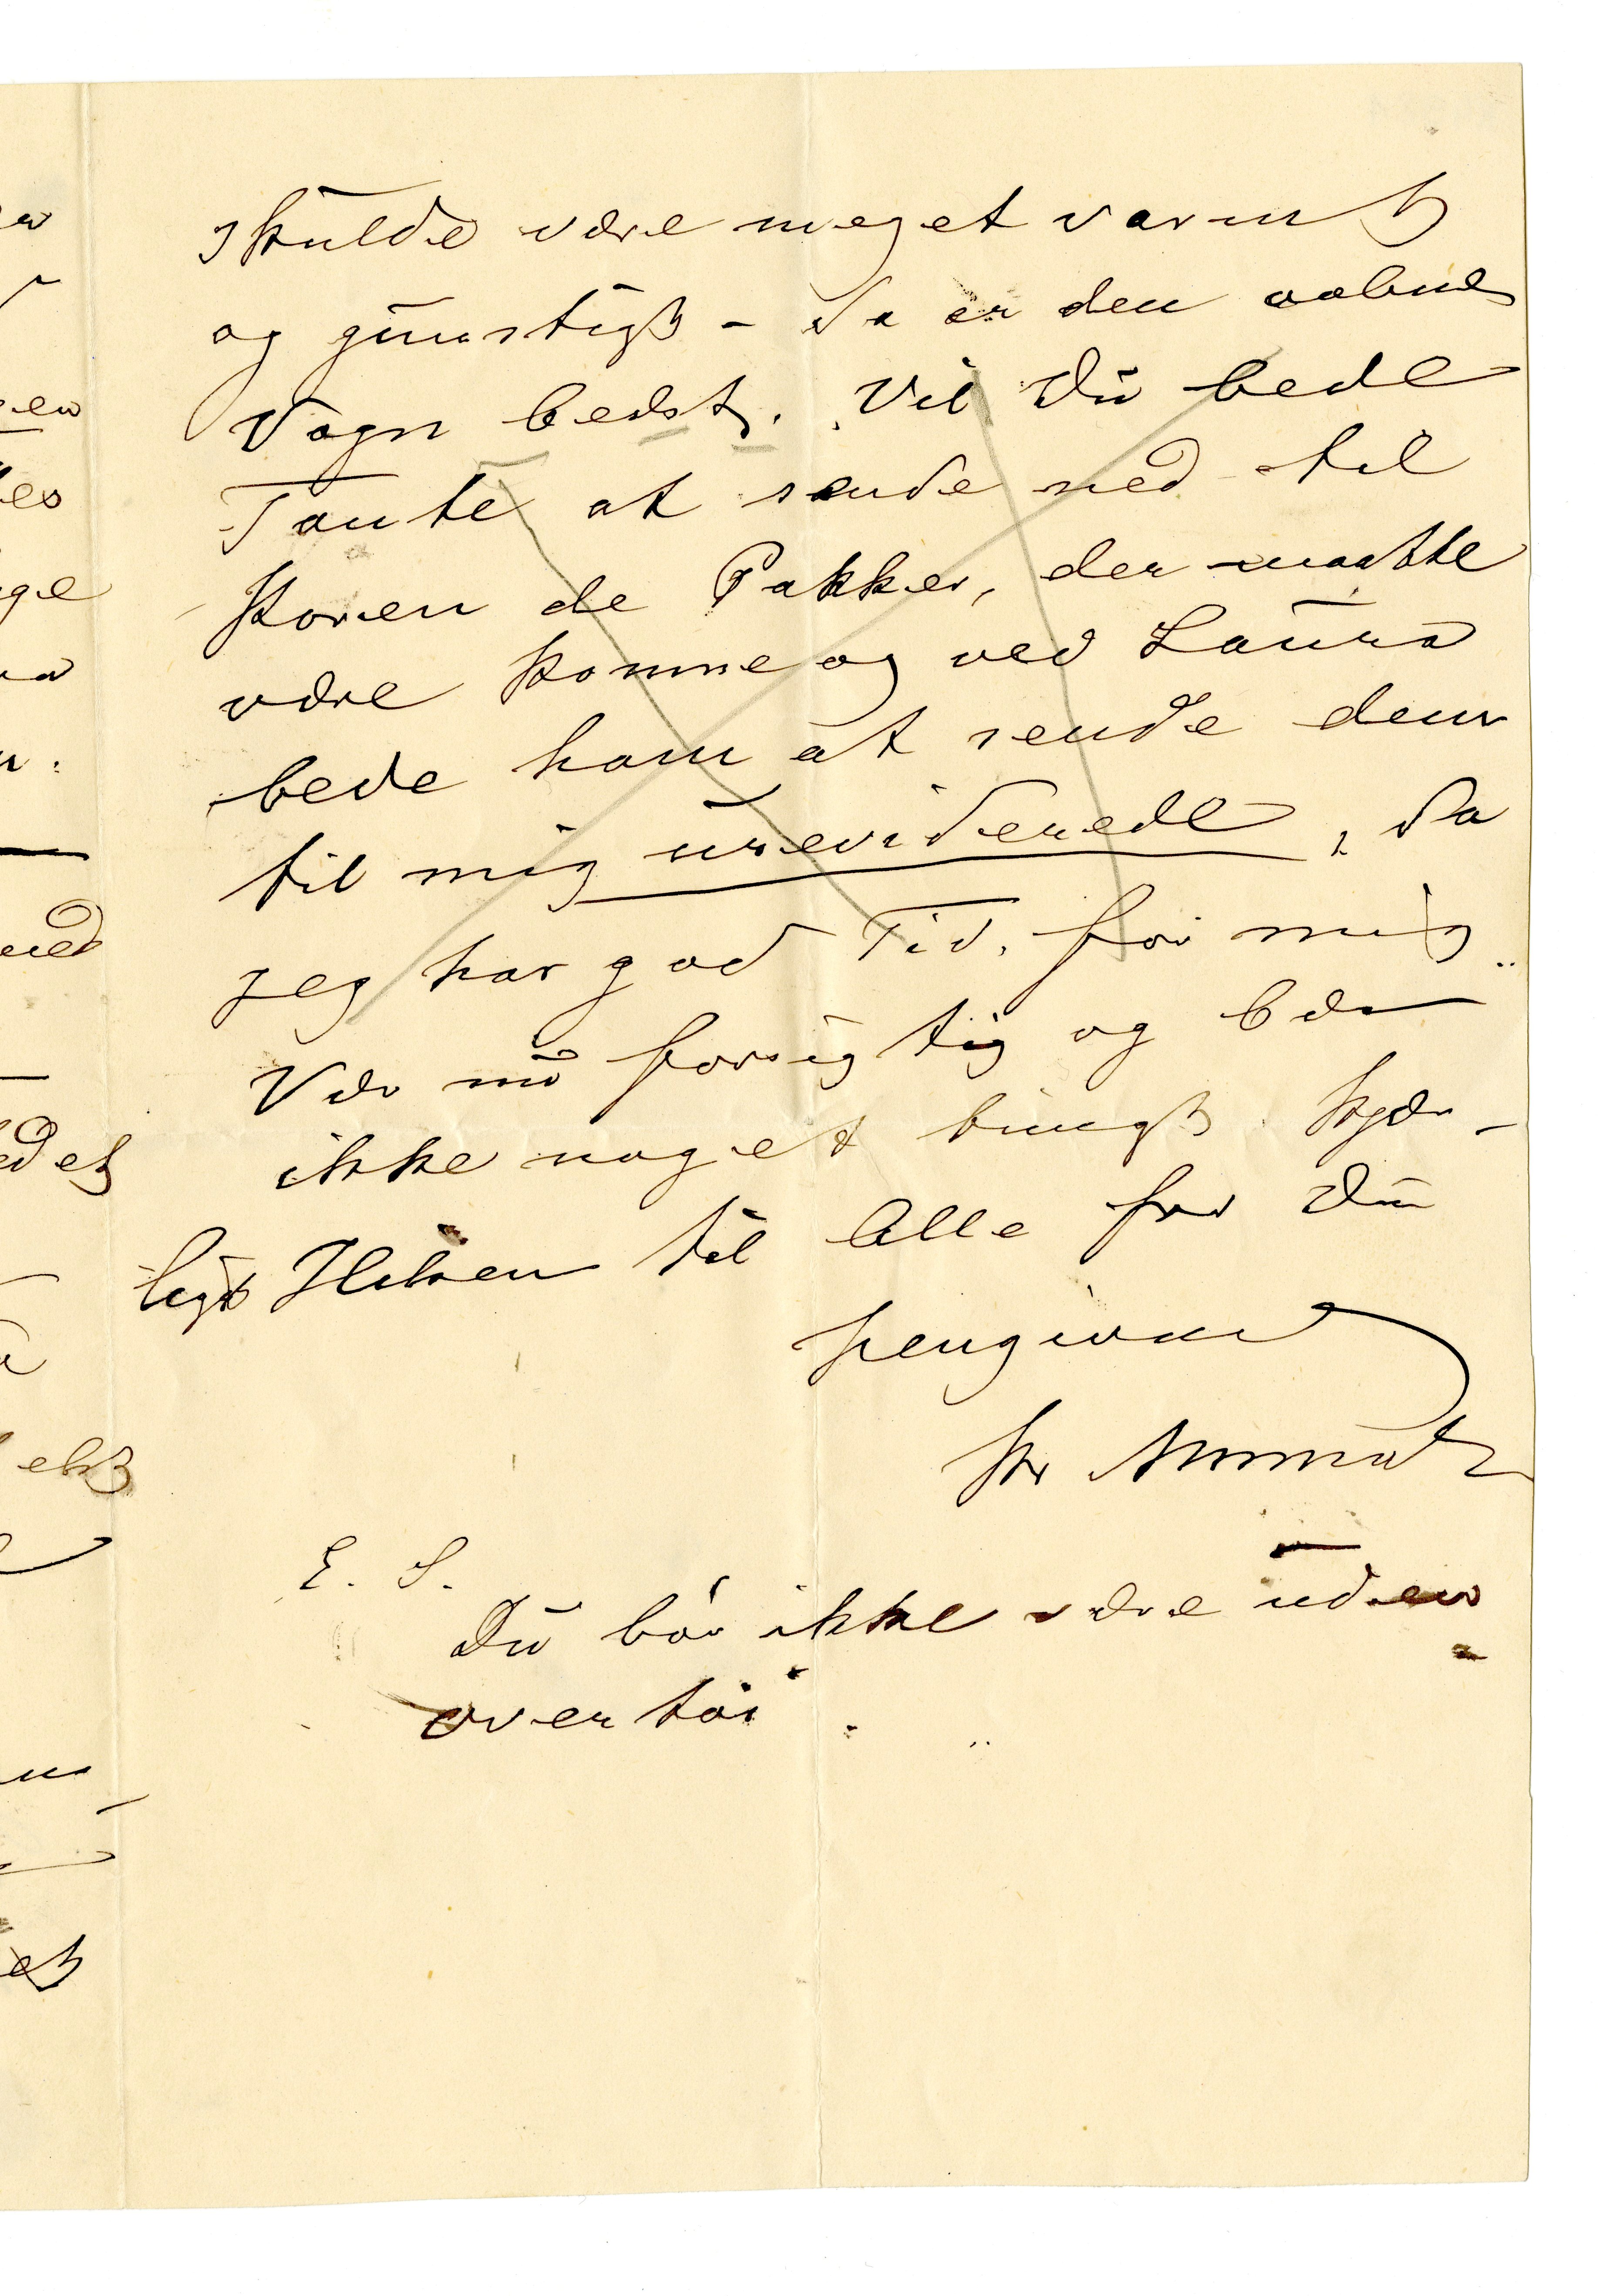 skulde være meget varmt
og gunstigt - da er den aabne
Vogn bedst. Vil Du bede
Tante at sende ned til
Koren de Pakker, der maatte
være komne og ved Laura
bede ham at sende dem
til mig ureviderede, da
jeg har god Tid for mig.
Vær nu forsigtig og bær
ikke noget tungt. Kjær-
ligst Hilsen til Alle fra Din
hengivne
Kr
E. S.
Du bör ikke være uden
overtöi.